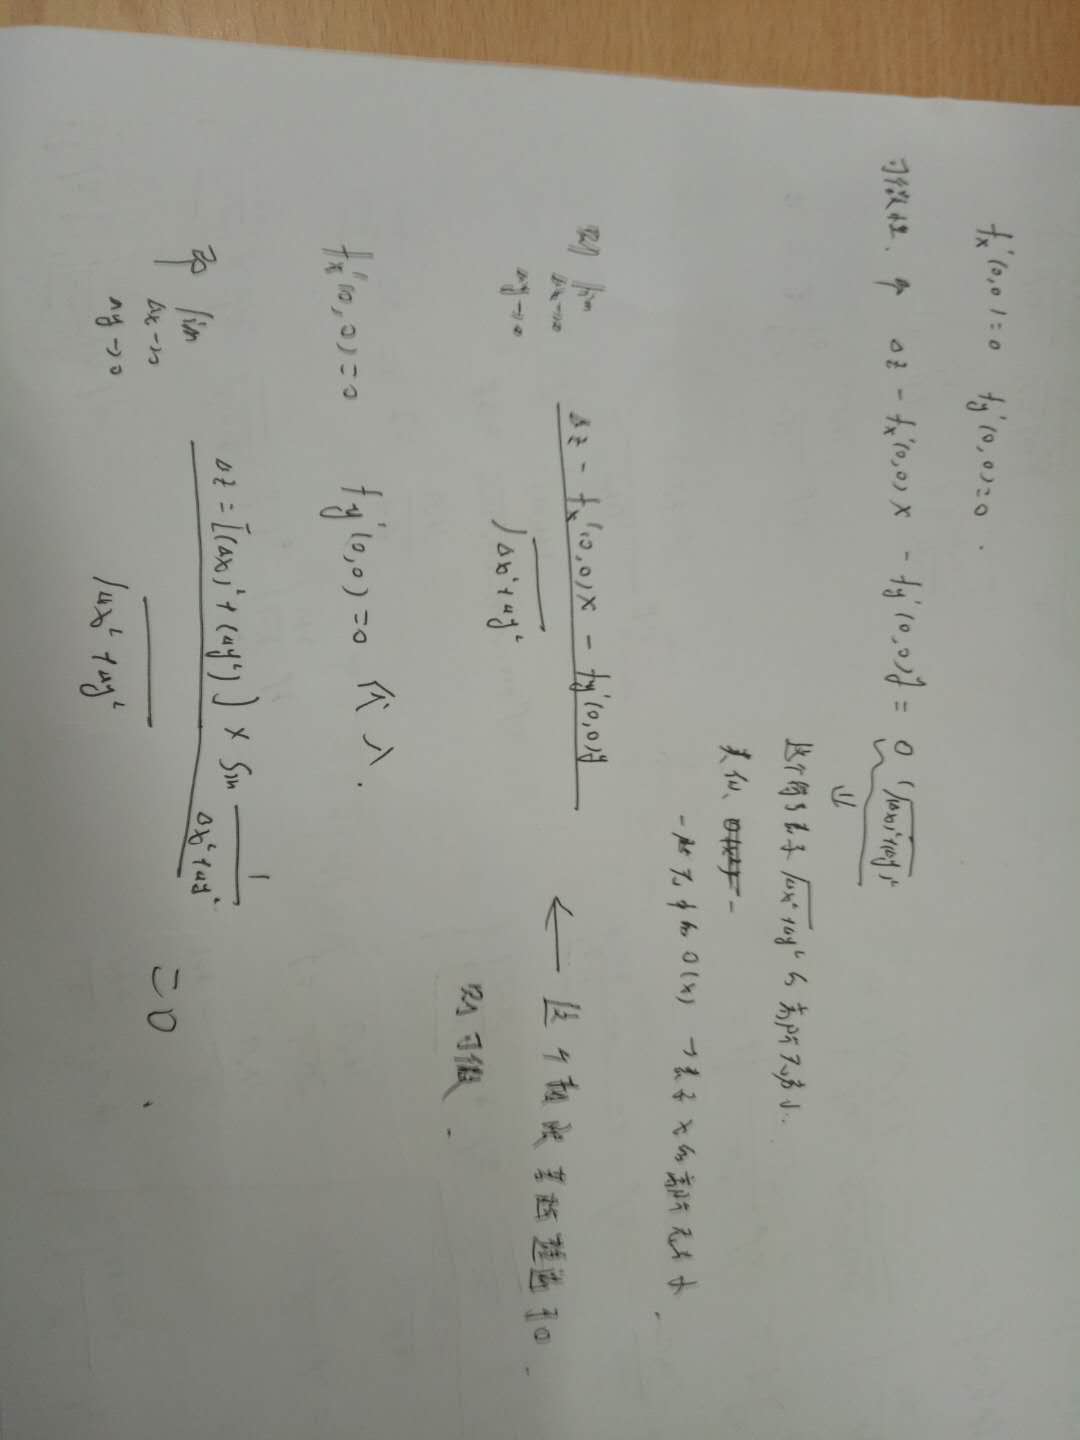 fx'(0,0)=0 fy'(0,0)=0.
可微性、即 Δz - fx'(0,0)x - fy'(0,0)y = o(√(Δx)²+(Δy)²)
⇓
这个符号表示 √Δx²+Δy² 的高阶无穷小.
类似、
一元中的 o(x) → 表示 x的高阶无穷小.
则 lim Δx→0 Δy→0 (Δz - fx'(0,0)x - fy'(0,0)y) / √Δx²+Δy² ← 这个极限若趋近于0.
则可微.
fx'(0,0)=0 fy'(0,0)=0 代入.
即 lim Δx→0 Δy→0 (Δz=[(Δx)²+(Δy²)] × Sin 1/(Δx²+Δy²)) / √Δx²+Δy² =0.